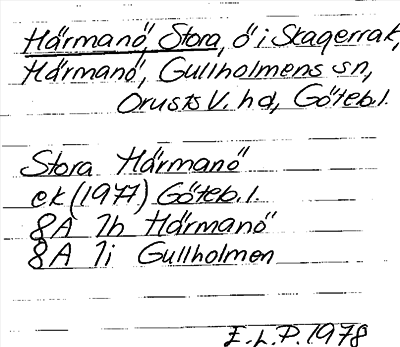 Härmanö, Stora, ö i Skagerrak,
Härmanö, Gullholmens sn,
Orusts V. hd, Göteb.l.
Stora Härmanö
ek (1977) Göteb.l.
8A 7h Härmanö
8A 7i Gullholmen
E.L.P. 1978